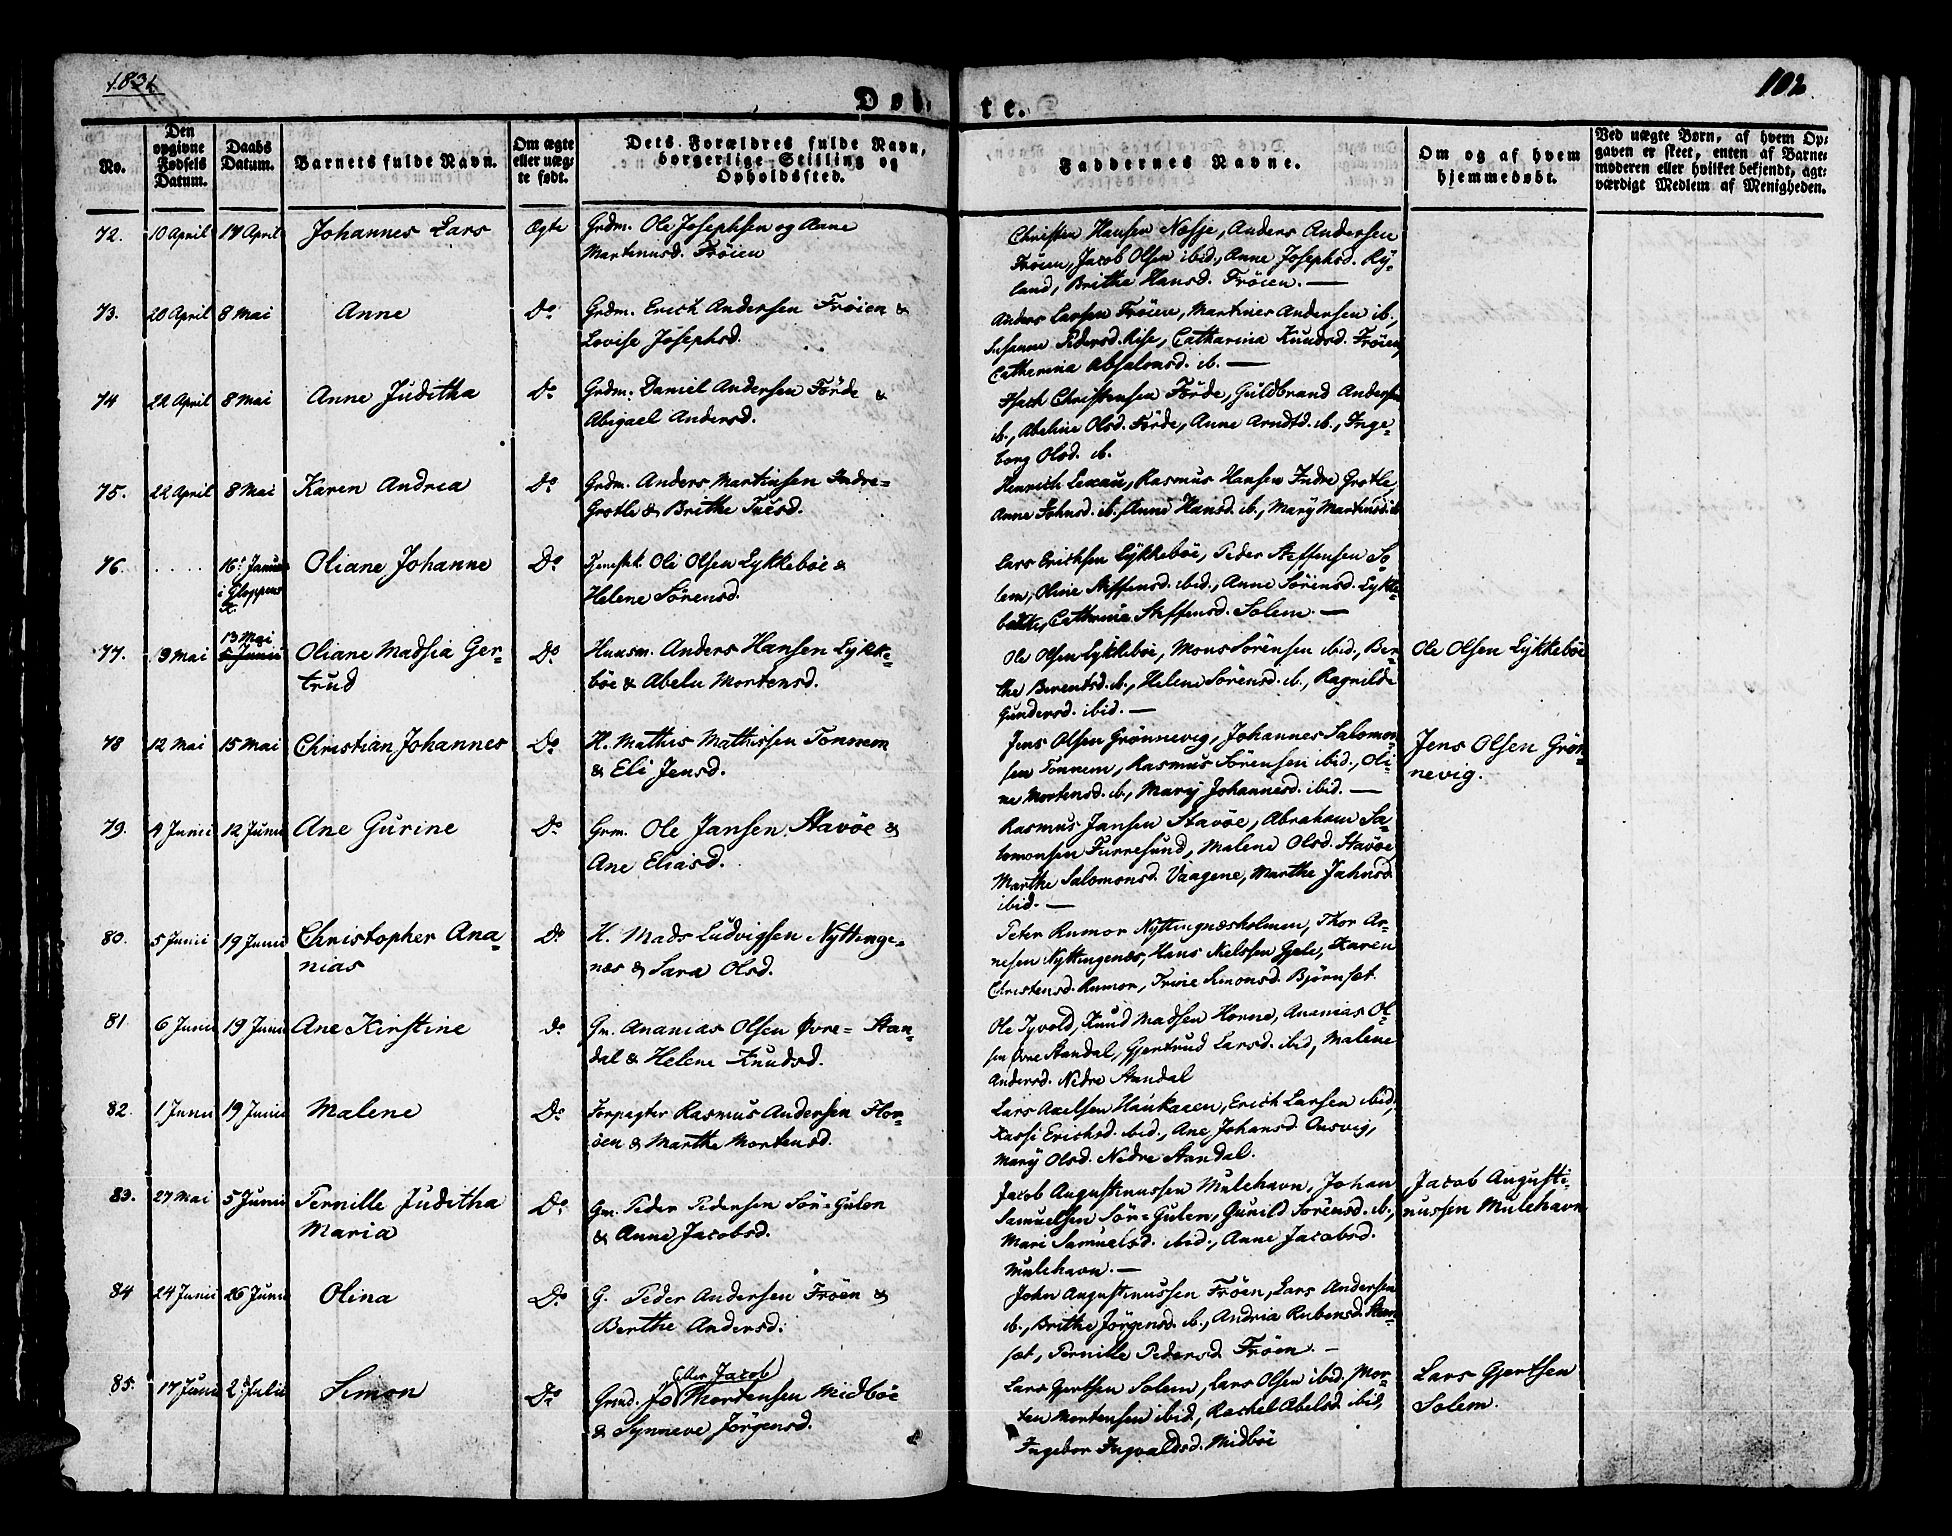 1831
102
Døbte.
No.
Den opgivne Fødsels Datum.
Daabs Datum.
Barnets fulde Navn.
Om ægte eller uægte født.
Dets Forældres fulde Navn, borgerlige Stilling og Opholdssted.
Faddernes Navne.
Om og af hvem hjemmedøbt.
Ved uægte Børn, af hvem Opgaven er skeet, enten af Barnemoderen eller hvilket bekjendt, agtværdigt Medlem af Menigheden.
72. 10 April 17 April Johannes Lars Ægte
Grdm. Ole Josephsen og Anne
Martinusd. Frøien
Christen Hansen Nesje, Anders Andersen
Frøien, Jacob Olsen ibid., Anne Josephsd. Ry-
land, Brithe Hansd. Frøien. —
73. 20 April 8 Mai Anne Do
Grdm. Erich Andersen Frøien &
Lovise Josephsd.
Anders Larsen Frøien, Martines Andersen ib.,
Susanne Pedersd. Rise, Catharina Knudsd. Frøien,
Catharina Absalonsd. ib. —
74 22 April 8 Mai Anne Juditha Do
Grdm. Daniel Andersen Förde &
Abigael Andersd.
Isach Christensen Förde, Güldbrand Andersen
ib., Abeline Olsd. Förde, Anne Arndtd. ib., Inge-
borg Olsd. ib.
75. 22 April 8 Mai Karen Andrea Do
Grdm. Anders Martinsen Indre-
Grotle & Brithe Tuesd.
Henrich Lexau, Rasmus Hansen Indre Grotle,
Anne Johnsd. ib., Anne Hansd. ib., Mary Martinsd. ib
76. . . . . 16 Janu
i Gloppens
K. Oliane Johanne Do
Tjenestk. Ole Olsen Lykkebøe &
Helene Sørensd.
Lars Erichsen Lykkebøe, Peder Steffensen So-
lem, Oline Steffensd. ibid., Anne Sörensd. Lykke-
Catharina Steffensd. Solem. —
77. 9 Mai 13 Mai
5 Junii Oliane Madsia Ger-
trud Do
Huusm. Anders Hansen Lykke-
böe & Abelu Mortensd.
Ole Olsen Lykkebøe, Mons Sørensen ibid., Ber-
the Berentsd. ib., Helene Sörensd. ib., Ragnilde
Gundersd. ibid. —
Ole Olsen Lykkebøe
78 12 Mai 15 Mai Christian Johannes Do
H. Mathis Mathissen Tonnem
& Eli Jensd.
Jens Olsen Grönnevig, Johannes Salomon-
sen Tonnem, Rasmus Sörensen ibid., Oli-
ne Mortensd. ib., Mary Johannesd. ibid. —
Jens Olsen Grön-
nevig.
79. 4 Junii 12 Junii Ane Gurine Do
Grm. Ole Jansen Stavöe &
Ane Eliasd.
Rasmus Jansen Stavöe, Abraham Sa-
lomonsen Furresund, Malene Olsd. Stavöe,
Marthe Salomonsd. Vaagene, Marthe Jahnsd.
ibid. —
80. 5 Junii 19 Junii Christopher Ana-
nias Do
H. Mads Ludvigsen Nyttinge-
næs & Sara Olsd.
Peter Rumor Nyttingnæsholmen, Thor Ar-
nesen Nyttingenæs, Hans Nielssen Gjele, Karen
Christensd. Rumor, Trine Simonsd. Björnset
81. 6 Junii 19 Junii Ane Kirstine do
Gm. Ananias Olsen Øvre- Stan-
dal & Helene Knudsd.
Ole Tyvold, Knud Madsen Horne, Ananias Ol-
sen Øvre Standal, Gjertrud Larsd. ibid, Malene
Andersd. Nedre Standal
82. 1 Junii 19 Junii Malene Do
Forpagter Rasmus Andersen Hor-
öen & Marthe Mortensd.
Lars Axelsen Haukaaen, Erich Larsen ibid,
Kassi Erichsd. ibid., Ane Johansd. Ausvig,
Mary Olsd. Nedre Standal.
83. 27 Mai 5 Junii Pernille Juditha
Maria Do
Gm. Peder Pedersen Sör-Gulen
& Anne Jacobsd.
Jacob Augustinussen Mulehavn, Johan
Samuelsen Sör-Gulen, Gunild Sörensd. ib.,
Mari Samuelsd. ibid., Anne Jacobsd.
Mulehavn. —
Jacob Augusti-
nussen Mulehavn
84 24 Junii 26 Junii Olina Do
G. Peder Andersen Frøen &
Berthe Andersd.
John Augustinussen Fröen, Lars Andersen
ib., Brithe Jörgensd. ib., Andria Rubensd.
set, Pernille Pedersd. Frøen. —
85. 17 Junii 2 Julii Simon Do
eller Jacob
Grmd. Jo Mortensen Midböe
& Synneve Jörgensd.
Lars Gjertsen Solem, Lars Olsen ibid, Mor-
ten Mortensen ibid., Rachel Abelsd. ibid,
Ingebor Ingvaldsd. Midböe
Lars Gjertsen
Solem.